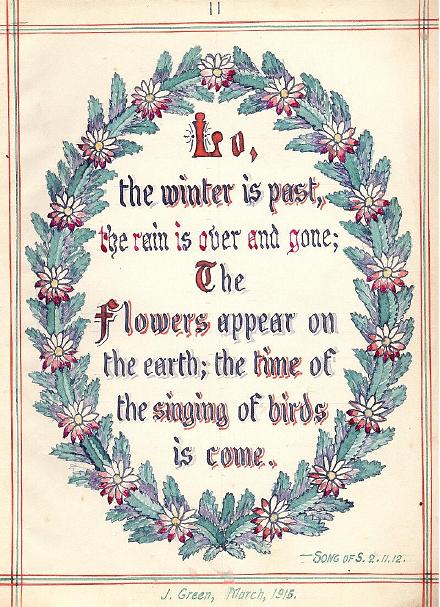 11
Lo,
the winter is past,
the rain is over and gone;
The
Flowers appear on
the earth; the time of
the singing of birds
is come.
—SONG OF S. 2. 11. 12.
J. Green, March, 1915.